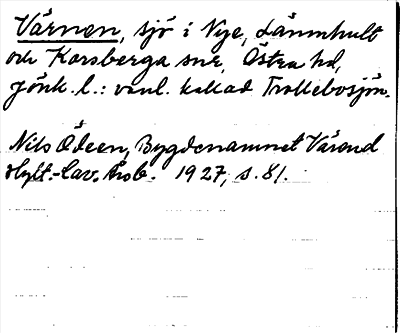 Värnen, sjö i Nye, Lännhult
och Karsberga snr, Östra hd,
Jönk. l.: vanl. kallad Trollebosjön.
Nils Ödeen, Bygdenamnet Värend
Hylt.-Cav. Årsb. 1927, s. 81.